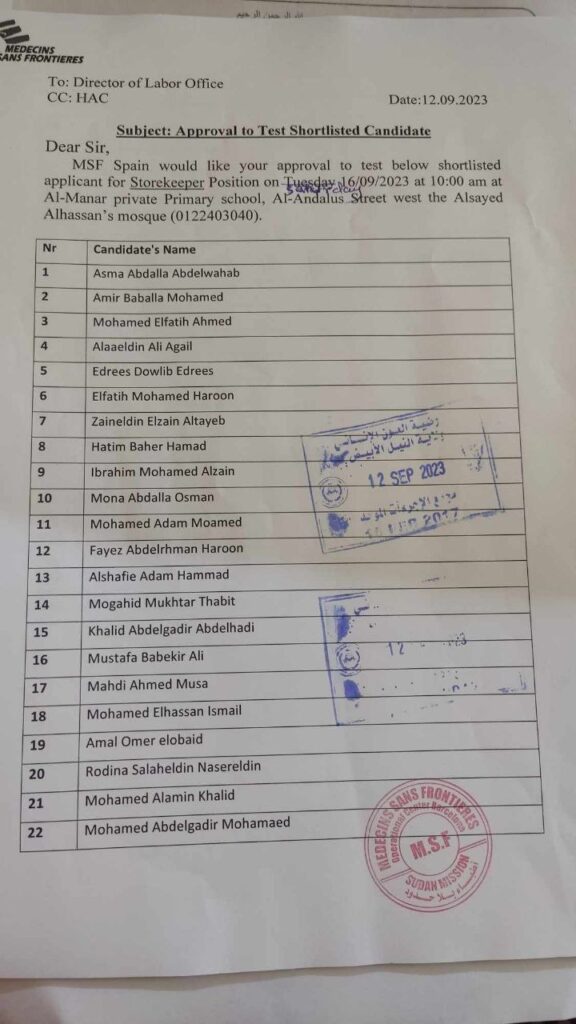 MEDECINS
SANS FRONTIERES
To: Director of Labor Office
CC: HAC
Date:12.09.2023
Subject: Approval to Test Shortlisted Candidate
Dear Sir,
MSF Spain would like your approval to test below shortlisted
applicant for Storekeeper Position on Tuesday 16/09/2023 at 10:00 am at
Al-Manar private Primary school, Al-Andalus Street west the Alsayed
Alhassan's mosque (0122403040).
Nr Candidate's Name
1 Asma Abdalla Abdelwahab
2 Amir Baballa Mohamed
3 Mohamed Elfatih Ahmed
4 Alaaeldin Ali Agail
5 Edrees Dowlib Edrees
6 Elfatih Mohamed Haroon
7 Zaineldin Elzain Altayeb
8 Hatim Baher Hamad
9 Ibrahim Mohamed Alzain
10 Mona Abdalla Osman
11 Mohamed Adam Moamed
12 Fayez Abdelrhman Haroon
13 Alshafie Adam Hammad
14 Mogahid Mukhtar Thabit
15 Khalid Abdelgadir Abdelhadi
16 Mustafa Babekir Ali
17 Mahdi Ahmed Musa
18 Mohamed Elhassan Ismail
19 Amal Omer elobaid
20 Rodina Salaheldin Nasereldin
21 Mohamed Alamin Khalid
22 Mohamed Abdelgadir Mohamaed
العون الإنساني
النيل الأبيض
12 SEP 2023
MEDECINS SANS FRONTIERES
Operational Center Barcelona
M.S.F
SUDAN MISSION
أطباء بلا حدود